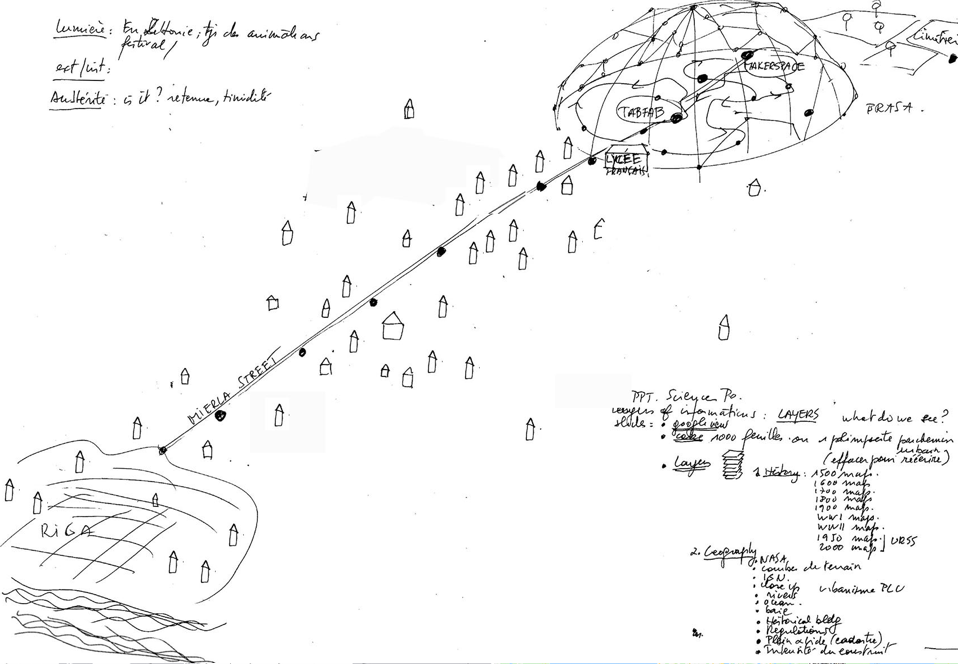 Lumière : En Lettonie, tjs des animations
festival /
ext/int :
Austérité : is it ? retenue, timidité
MAKERSPACE
TABFAB
LYCEE
FRANCAIS
BRASA.
MIERLA STREET
RIGA
PPT. Science Po.
of informations : LAYERS what do we see?
slides : • google view
• 1000 feuilles ou 1 parchemin
urbain
(effacer pour réécrire)
• Layers
1 History : 1500 maps.
1600 maps
1700 maps.
1800 maps
1900 maps.
WWI maps.
WWII maps.
1950 maps. ] URSS
2000 maps
2. Geography
• NASA
• courbe de terrain
• IGN.
• close up urbanisme PLU
• rivers
• ocean.
• baie
• Historical bldg
• Regulations
• Plein a vide (cadastre)
• Intensité du construit